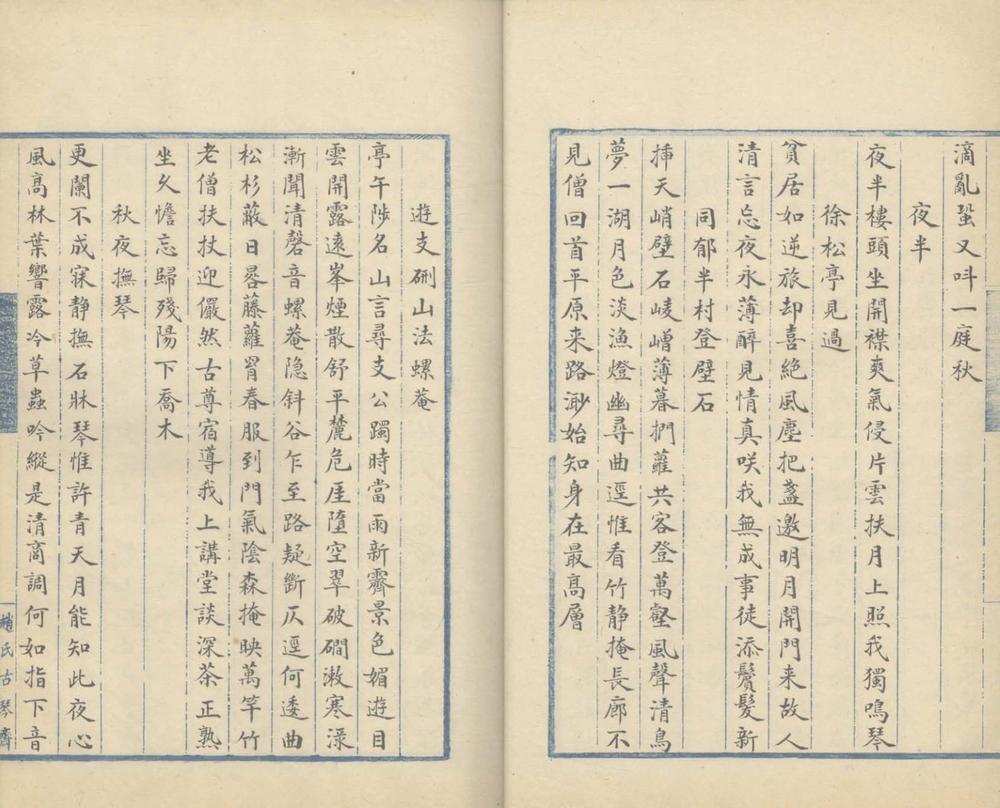 滴亂蛩又呌一庭秋
夜半
夜半樓頭坐開襟爽氣侵片雲扶月上照我獨鳴琴
徐松亭見過
貧居如逆旅却喜絶風塵把盞邀明月開門来故人
清言忘夜永薄醉見情真咲我無成事徒添鬢髮新
同郁半村登壁石
揷天峭壁石崚嶒薄暮捫蘿共客登萬壑風聲清鳥
夢一湖月色淡漁燈幽尋曲逕惟看竹静掩長廊不
見僧回首平原来路渺始知身在最高層
遊支硎山法螺菴
亭午陟名山言尋支公躅時當雨新霽景色媚遊目
雲開露遠峯煙散舒平麓危厓墮空翠破磵漱寒渌
漸聞清磬音螺菴隐斜谷乍至路疑斷仄逕何逶曲
松杉蔽日晷藤蘿罥春服到門氣陰森掩映萬竿竹
老僧扶杖迎儼然古尊宿導我上講堂談深茶正熟
坐久憺忘歸殘陽下喬木
秋夜撫琴
更闌不成寐静撫石牀琴惟許青天月能知此夜心
風髙林葉響露冷草蟲吟縱是清商調何如指下音
趙氏古琴齋